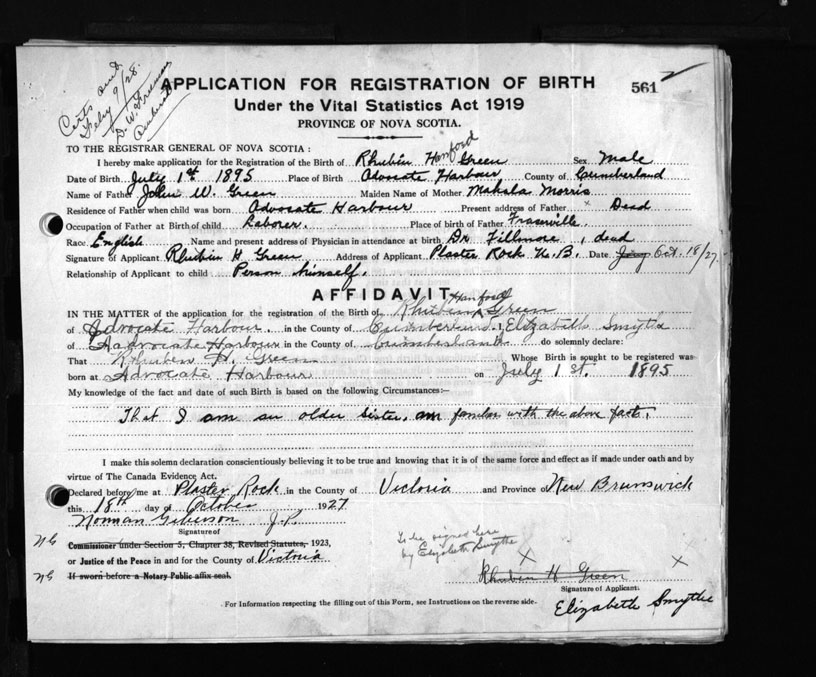 Certs and
Feby 9/28.
D. W. Freeman
Amherst
APPLICATION FOR REGISTRATION OF BIRTH
561
Under the Vital Statistics Act 1919
PROVINCE OF NOVA SCOTIA.
TO THE REGISTRAR GENERAL OF NOVA SCOTIA:
I hereby make application for the Registration of the Birth of Rhubin Hanford Green Sex Male
Date of Birth July 1st 1895 Place of Birth Advocate Harbour County of Cumberland
Name of Father John W. Green Maiden Name of Mother Mahala Morris
Residence of Father when child was born Advocate Harbour Present address of Father x Dead
Occupation of Father at Birth of child Laborer. Place of birth of Father Fraserville.
Race English Name and present address of Physician in attendance at birth Dr Fillmore, dead
Signature of Applicant Rhubin H Green Address of Applicant Plaster Rock N.B. Date Oct. 18/27.
Relationship of Applicant to child Person himself.
AFFIDAVIT
Hanford
IN THE MATTER of the application for the registration of the Birth of Rhuben Green
of Advocate Harbour. in the County of Cumberland. I, Elizabeth Smyth
of Aadvocate Harbour in the County of Cumberland. do solemnly declare:
That Rhuben H. Green Whose Birth is sought to be registered was
born at Advocate Harbour on July 1st. 1895
My knowledge of the fact and date of such Birth is based on the following Circumstances:—
That I am an older sister, am familiar with the above fact.
I make this solemn declaration conscientiously believing it to be true and knowing that it is of the same force and effect as if made under oath and by
virtue of The Canada Evidence Act.
Declared before me at Plaster Rock in the County of Victoria and Province of New Brunswick
this 18th day of October 1927
Norman Giberson J.P.
Signature of
NG Commissioner under Section 5, Chapter 38, Revised Statutes, 1923,
To be signed here
by Elizabeth Smythe
or Justice of the Peace in and for the County of Victoria
x x
NG If sworn before a Notary Public affix seal.
Rhubin H Green
Signature of Applicant.
For Information respecting the filling out of this Form, see Instructions on the reverse side.
Elizabeth Smythe